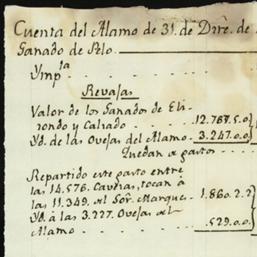 Cuenta del Alamo de 31. de Dire. de
Ganado de Pelo
Ympta
Revajas
Valor de los Ganados de Eli
rondo y Calvado 12.787.5.0
Yd. de las Ovejas del Alamo 3.247.0.0
Quedan de gastos
Repartido este gasto entre
las 14.576. Caveras, tocan à
las 11.349. al Sôr. Marques 1.860.2.2
Yd. à las 3.227. Ovejas del
Alamo 529.0.0